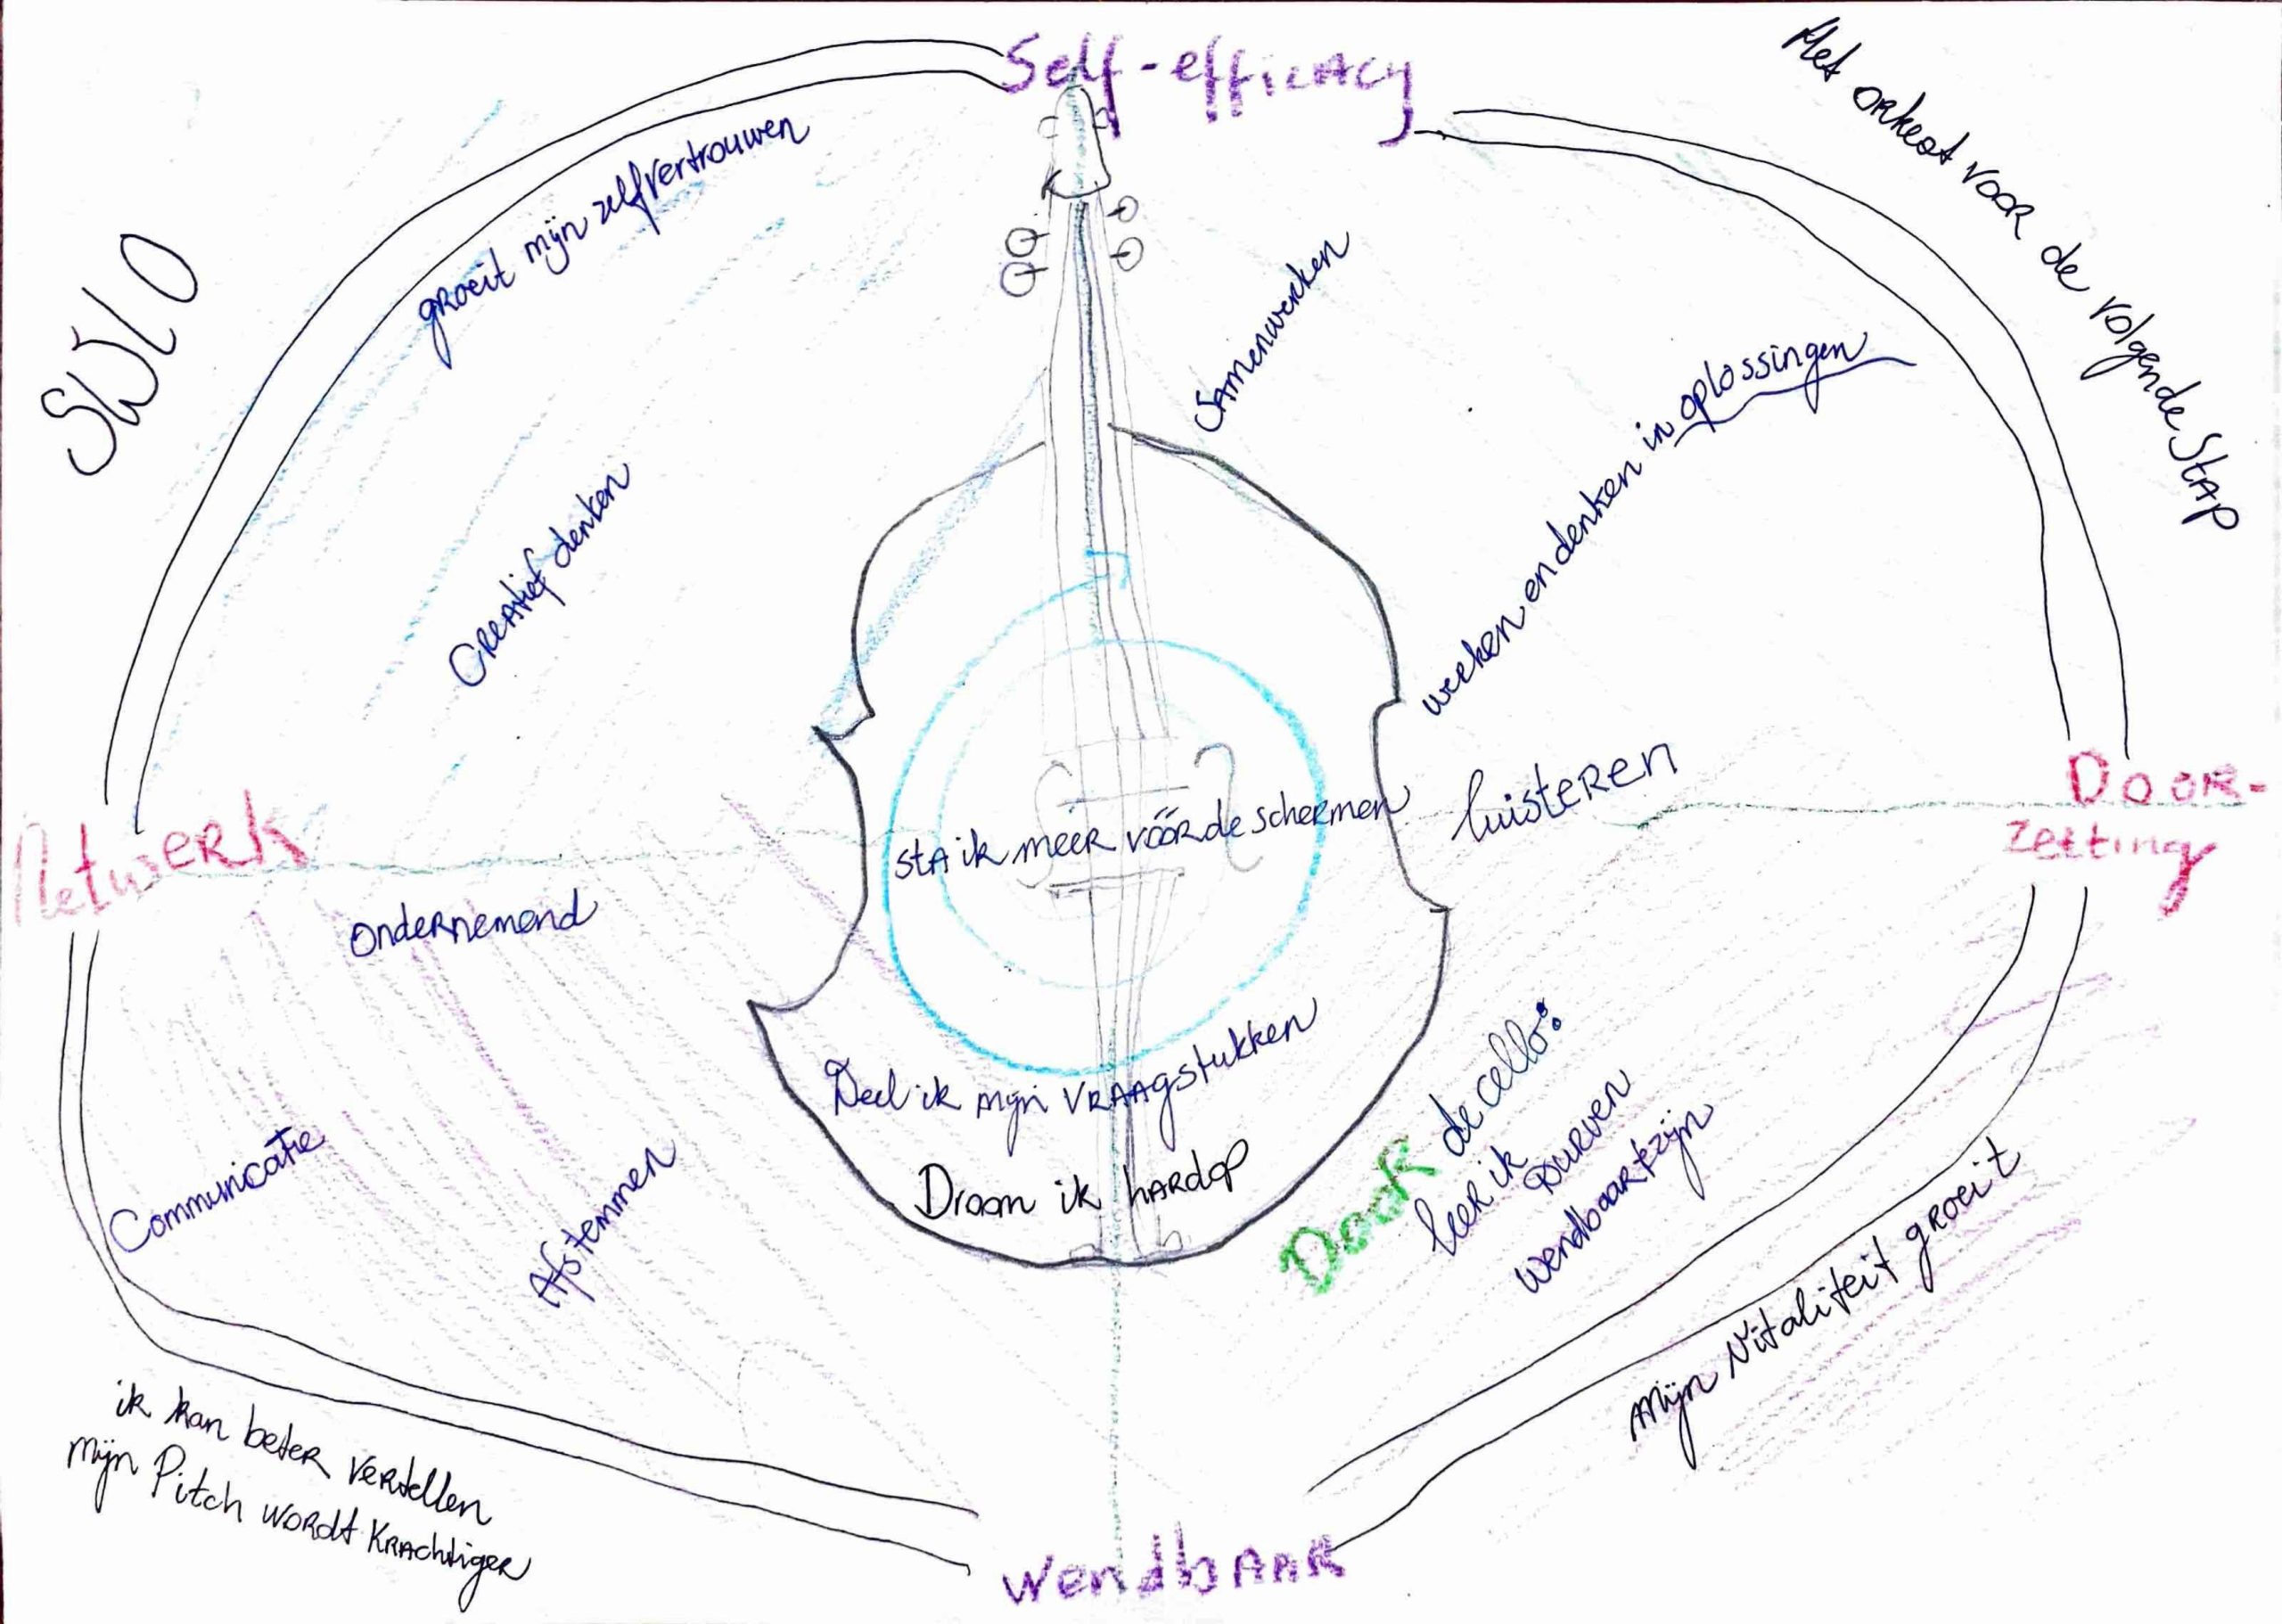 Self-efficacy
Het orkest voor de volgende Stap
SWLO
groeit mijn zelfvertrouwen
Samenwerken
werken en denken in oplossingen
Creatief denken
Netwerk
Door-
zetting
sta ik meer vóór de schermen
luisteren
ondernemend
Deel ik mijn vraagstukken
Droom ik hardop
Door de cello:
leer ik
Durven
Communicatie
Afstemmen
Mijn Vitaliteit groeit
ik kan beter vertellen
mijn Pitch wordt Krachtiger
Wendbaar